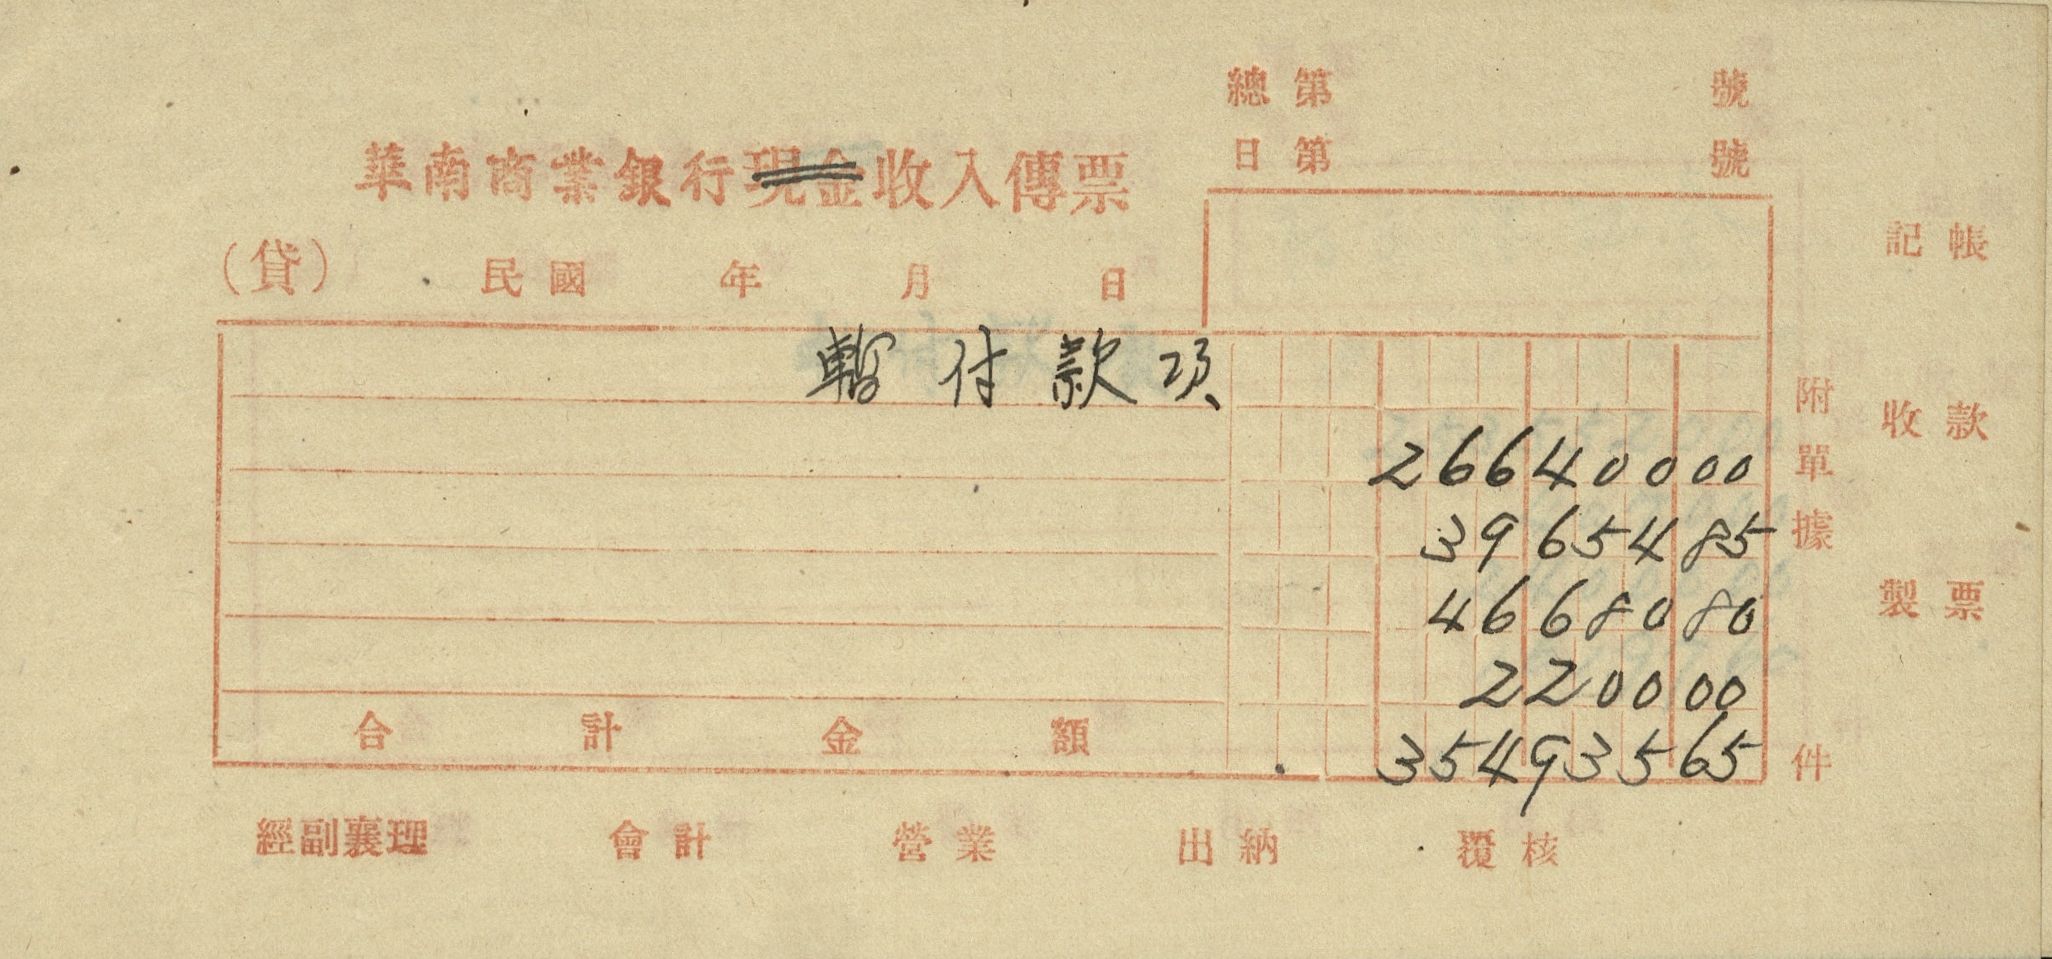 總第 號
日第 號
華南商業銀行現金收入傳票
(貸) 民國 年 月 日
暫付款項
26640000
3965485
4668080
220000
合計金額 35493565
附單據 件
記帳
收款
製票
經副襄理 會計 營業 出納 覆核